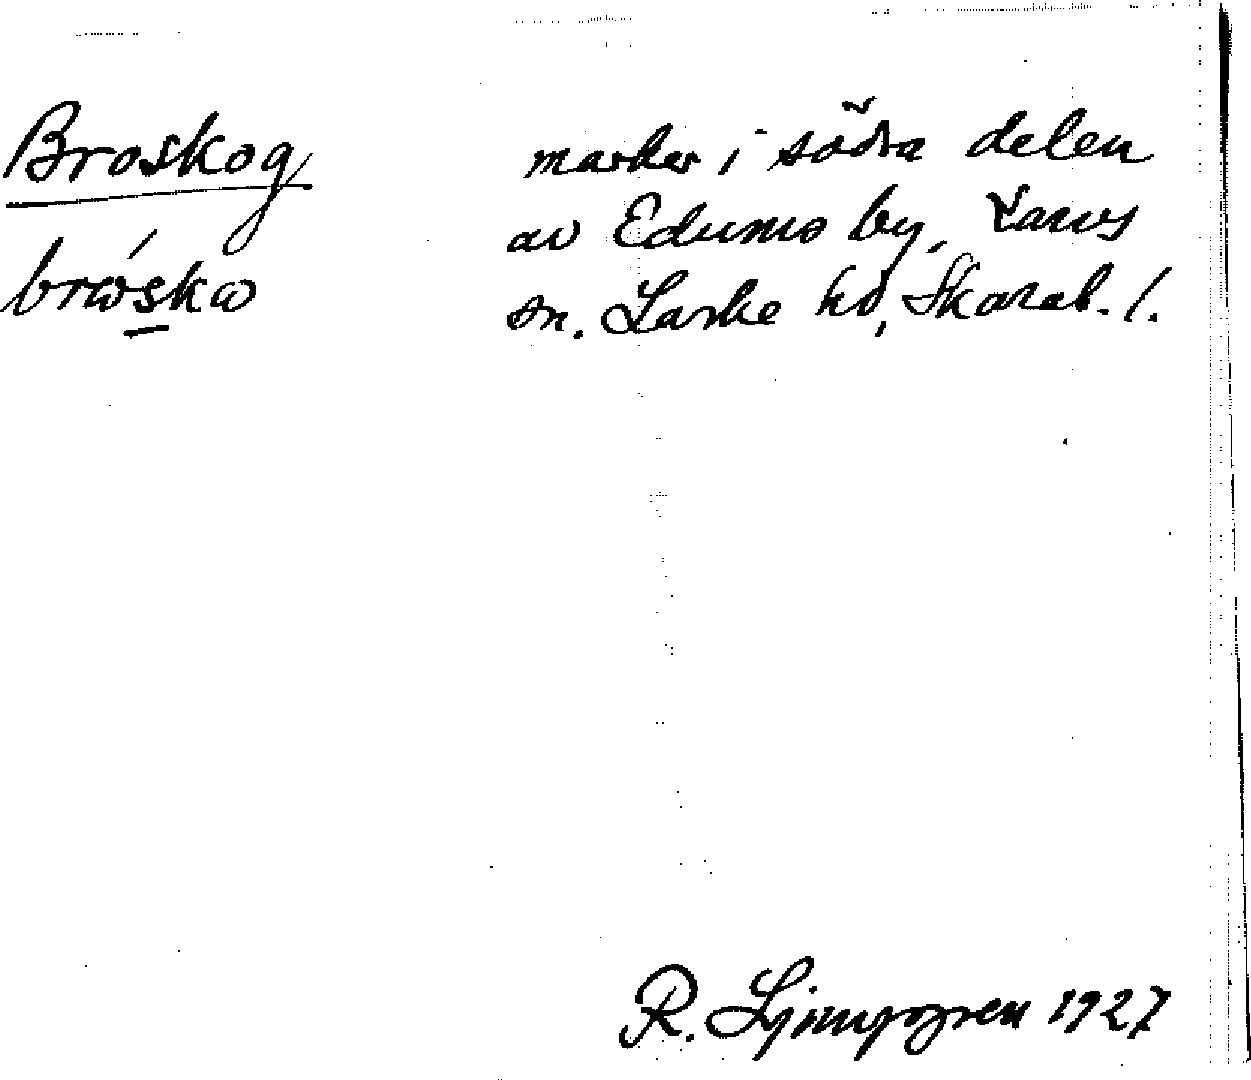 Broskog
marker i södra delen
av Edumo by, Larvs
sn. Laske hd, Skarab. l.
R. Ljunggren 1927